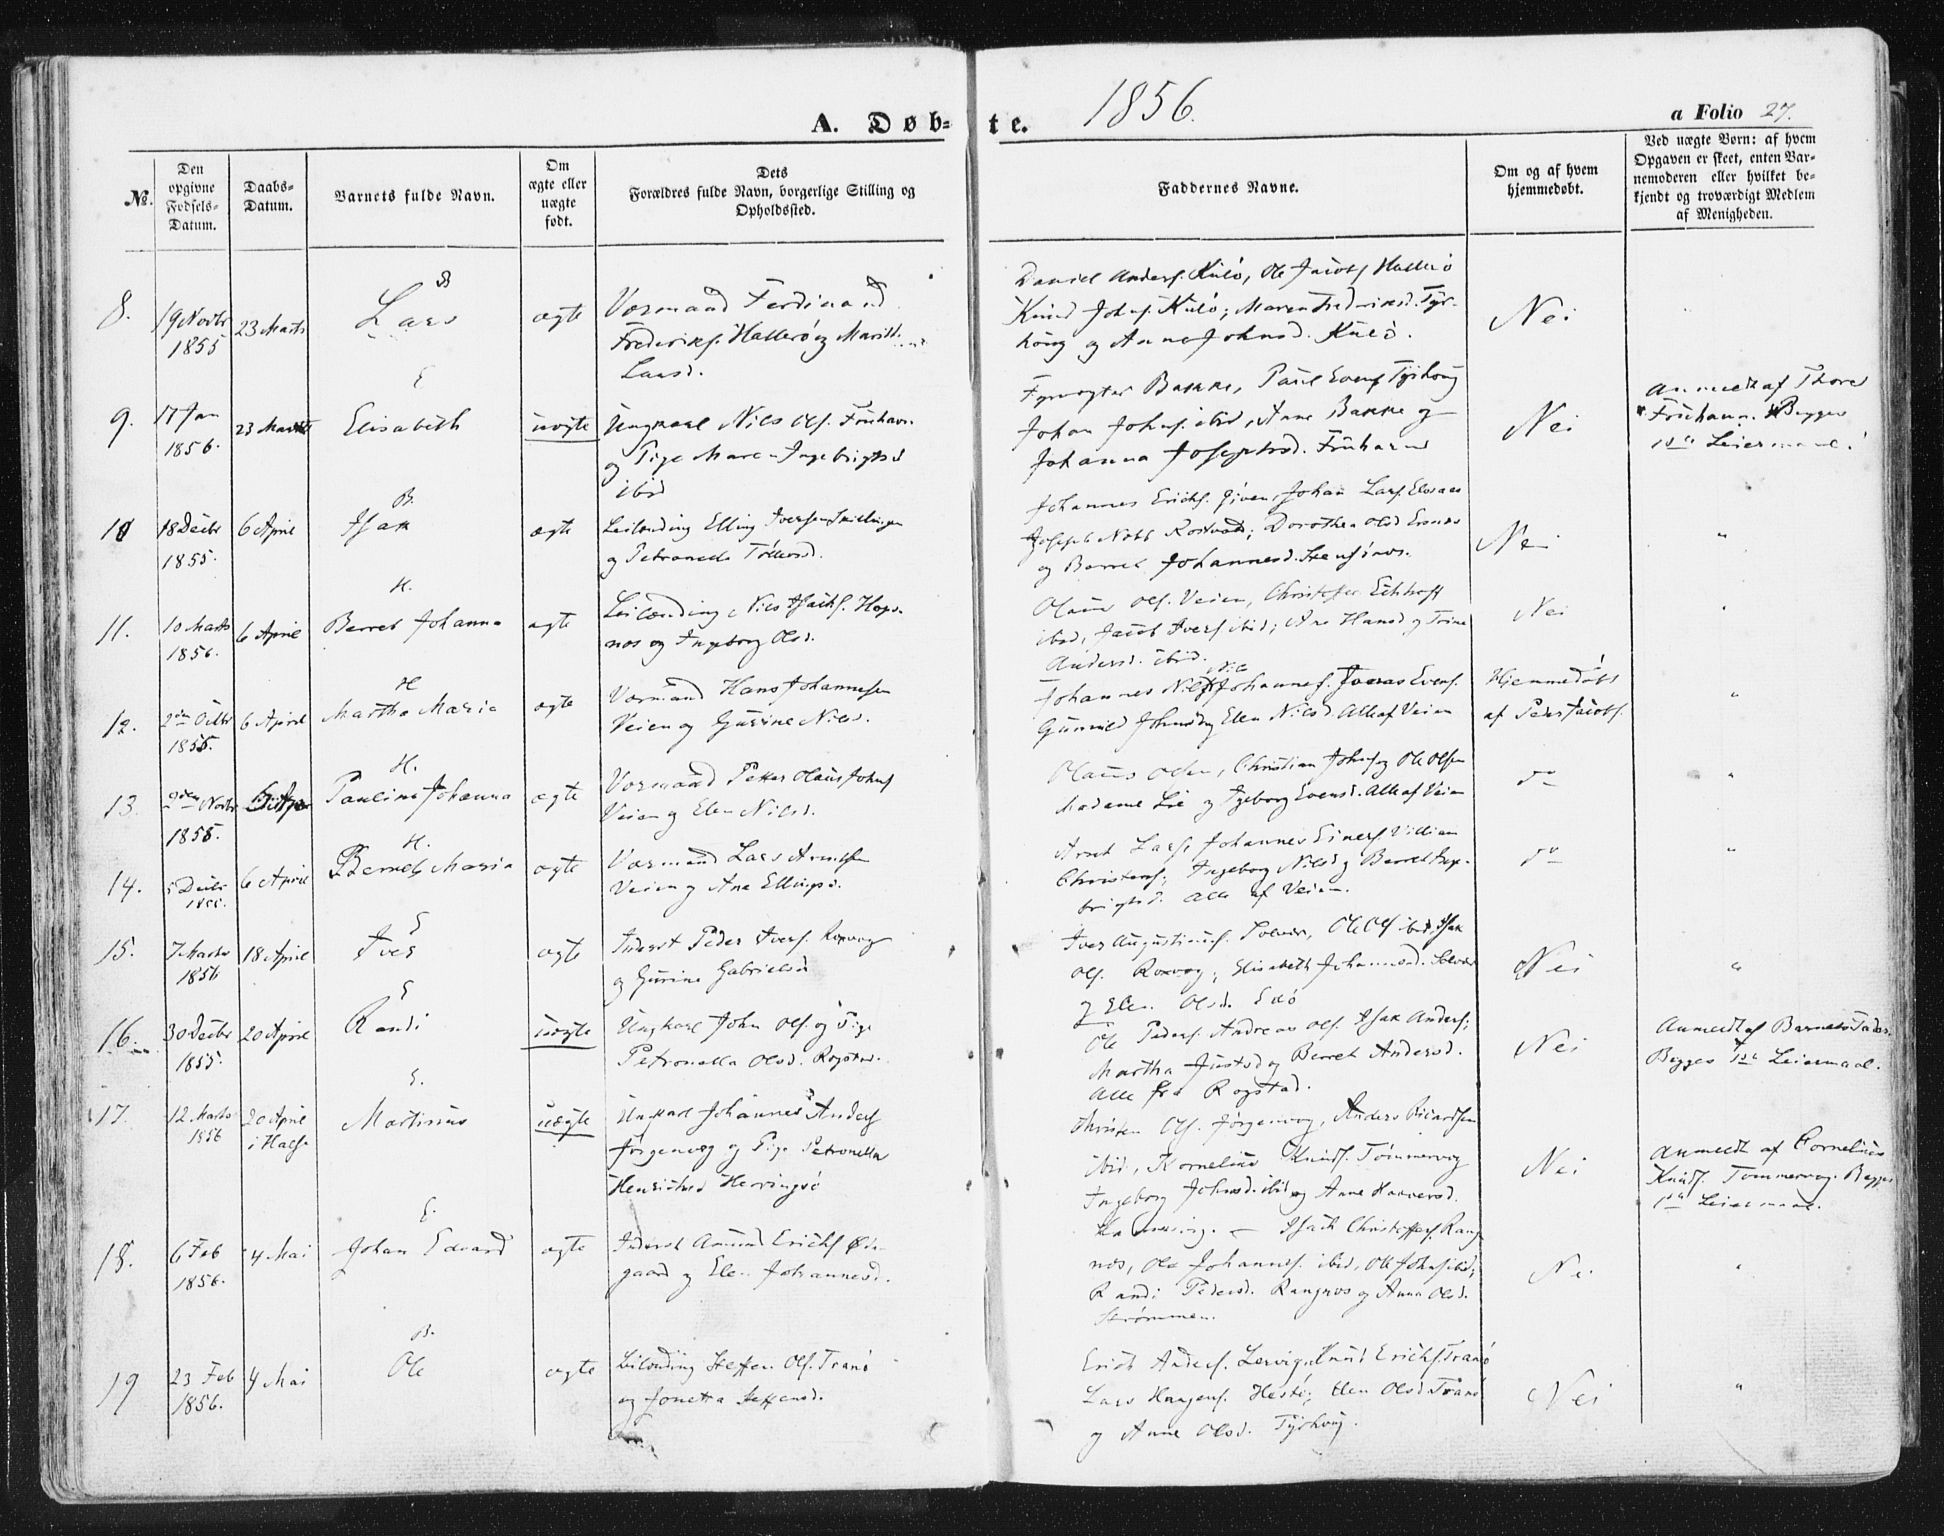 1856.
A. Døb-
te.
a Folio 27.
No.
Den
opgivne
Fødsels-
Datum.
Daabs-
Datum.
Barnets fulde Navn.
Om
ægte eller
uægte
født.
Dets
Forældres fulde Navn, borgerlige Stilling og
Opholdssted.
Faddernes Navne.
Om og af hvem
hjemmedøbt.
Ved uægte Børn: af hvem
Opgaven er skeet, enten Bar-
nemoderen eller hvilket be-
kjendt og troværdigt Medlem
af Menigheden.
8.
19 Novbr
1855
23 Marts
B
Lars
ægte
Vormand Ferdinand
Frederiks. Hallerø og
Larsd.
Daniel Anders. Kulø, Ole Jacobs. Hallerø
Knud Johns. Kulø; Maren Tyr-
houg og Anne Johnsd. Kulø.
Nei
9.
17 Jan
1856.
23 Marts
E
Elisabeth
uægte
Ungkarl Nils Ols.
og Pige Maren Ingebrigtsd
ibid
Bakke, Paul Evens. Tyrhoug
Johan Johns. ibid, Ane Bakke og
Johanna Josephsd.
Nei
Anmeldt af Thore
Begges
1ste Leiermaal.
10
18 Decbr
1855.
6 April
B.
Isak
ægte
Leilending Elling Iversen
og Petronelle
Johannes Erichs. Johan Lars.
Joseph Dorothea Olsd
og Berret Johannesd.
Nei
"
11.
10 Marts
1856.
6 April
H.
Berret Johanna
ægte
Leilending Nils Isachs. Hops-
nos og Ingeborg Olsd.
Olaus Ols. Veien, Christopher
ibid, Jacob Ivers. ibid; Ane Hansd og Trine
Andersd. ibid.
Nei
12.
2den Octbr
1855.
6 April
H
Martha Maria
ægte
Vormand Hans Johannesen
Veien og Gurine Nilsd.
Nils
Johannes Nils. Johannes. Evens.
Gunnild Johnsd og Elen Nilsd. Alle af Veien
Hjemmedøbt
af Peder Jacobs.
"
13.
2den Novbr
1855.
H.
Pauline Johanna
ægte
Vormand Petter Olaus Johns
Veien og Elen Nilsd.
Olaus Christian Johns. og Ole Olsen
Madame Lie og Evensd. Alle af Veien
do
"
14.
5 Decbr
6 April
H.
Berret Maria
ægte
Vormand Lars Arntsen
Veien og Ane Ellingsd.
Arnt Lars. Johannes Einers.
Christens; Ingeborg Nilsd og Berret Inge-
brigtsd. alle af Veien.
do
"
15.
7 Marts
1856
18 April
E
Iver
ægte
Inderst Peder Ivers. Roxvog
og Gurine Gabrielsd
Iver Augustinus. Ole Ols. ibid, Isak
Ols. Roxvog; Elisabeth Johannesd.
og Elen Olsd. Edø
Nei
"
16.
30 Decbr
1855.
20 April
E
Randi
uægte
Ungkarl John Ols. og Pige
Petronella Olsd. Rogstad.
Ole Peders. Andreas Ols. Isak Anders;
Martha Justsd og Berret Andersd.
Alle fra Rogstad.
Nei
Anmeldt af Barnets Fader.
Begges 1ste Leiermaal.
17.
12 Marts
1856
20 April
i Halse
E.
Martinus
uægte
Ungkarl Johannes Anders
Jørgenvog og Pige Petronella
Henriksd Herringsø
Christen Ols. Jørgenvog, Anders
ibid, Kornelius Knuds. Tømmervog
Ingeborg Johnsd. ibid og Anne
Nei
Anmeldt af Cornelius
Knuds. Tømmervog. Begges
1ste Leiermaal.
18.
6 Feb
1856.
4 Mai
E.
Johan Edvard
ægte
Inderst Amund Erichs Øde-
gaard og Elen Johannesd.
Isach Christoffers. Rang-
nos, Ole Johannes. ibid, Ole Johns. ibid;
Randi Pedersd. Rangnos og Anne Olsd.
Strømmen.
Nei
"
19
23 Feb
1856.
4 Mai
B.
Ole
ægte
Leilending Steffen Ols. Tranø
og Jonetta Steffensd.
Erich Anders. Knud Erichs. Tranø
Lars Haagens. Hestø; Elen Olsd. Tranø
og Anne Olsd. Tyrhoug.
Nei
"